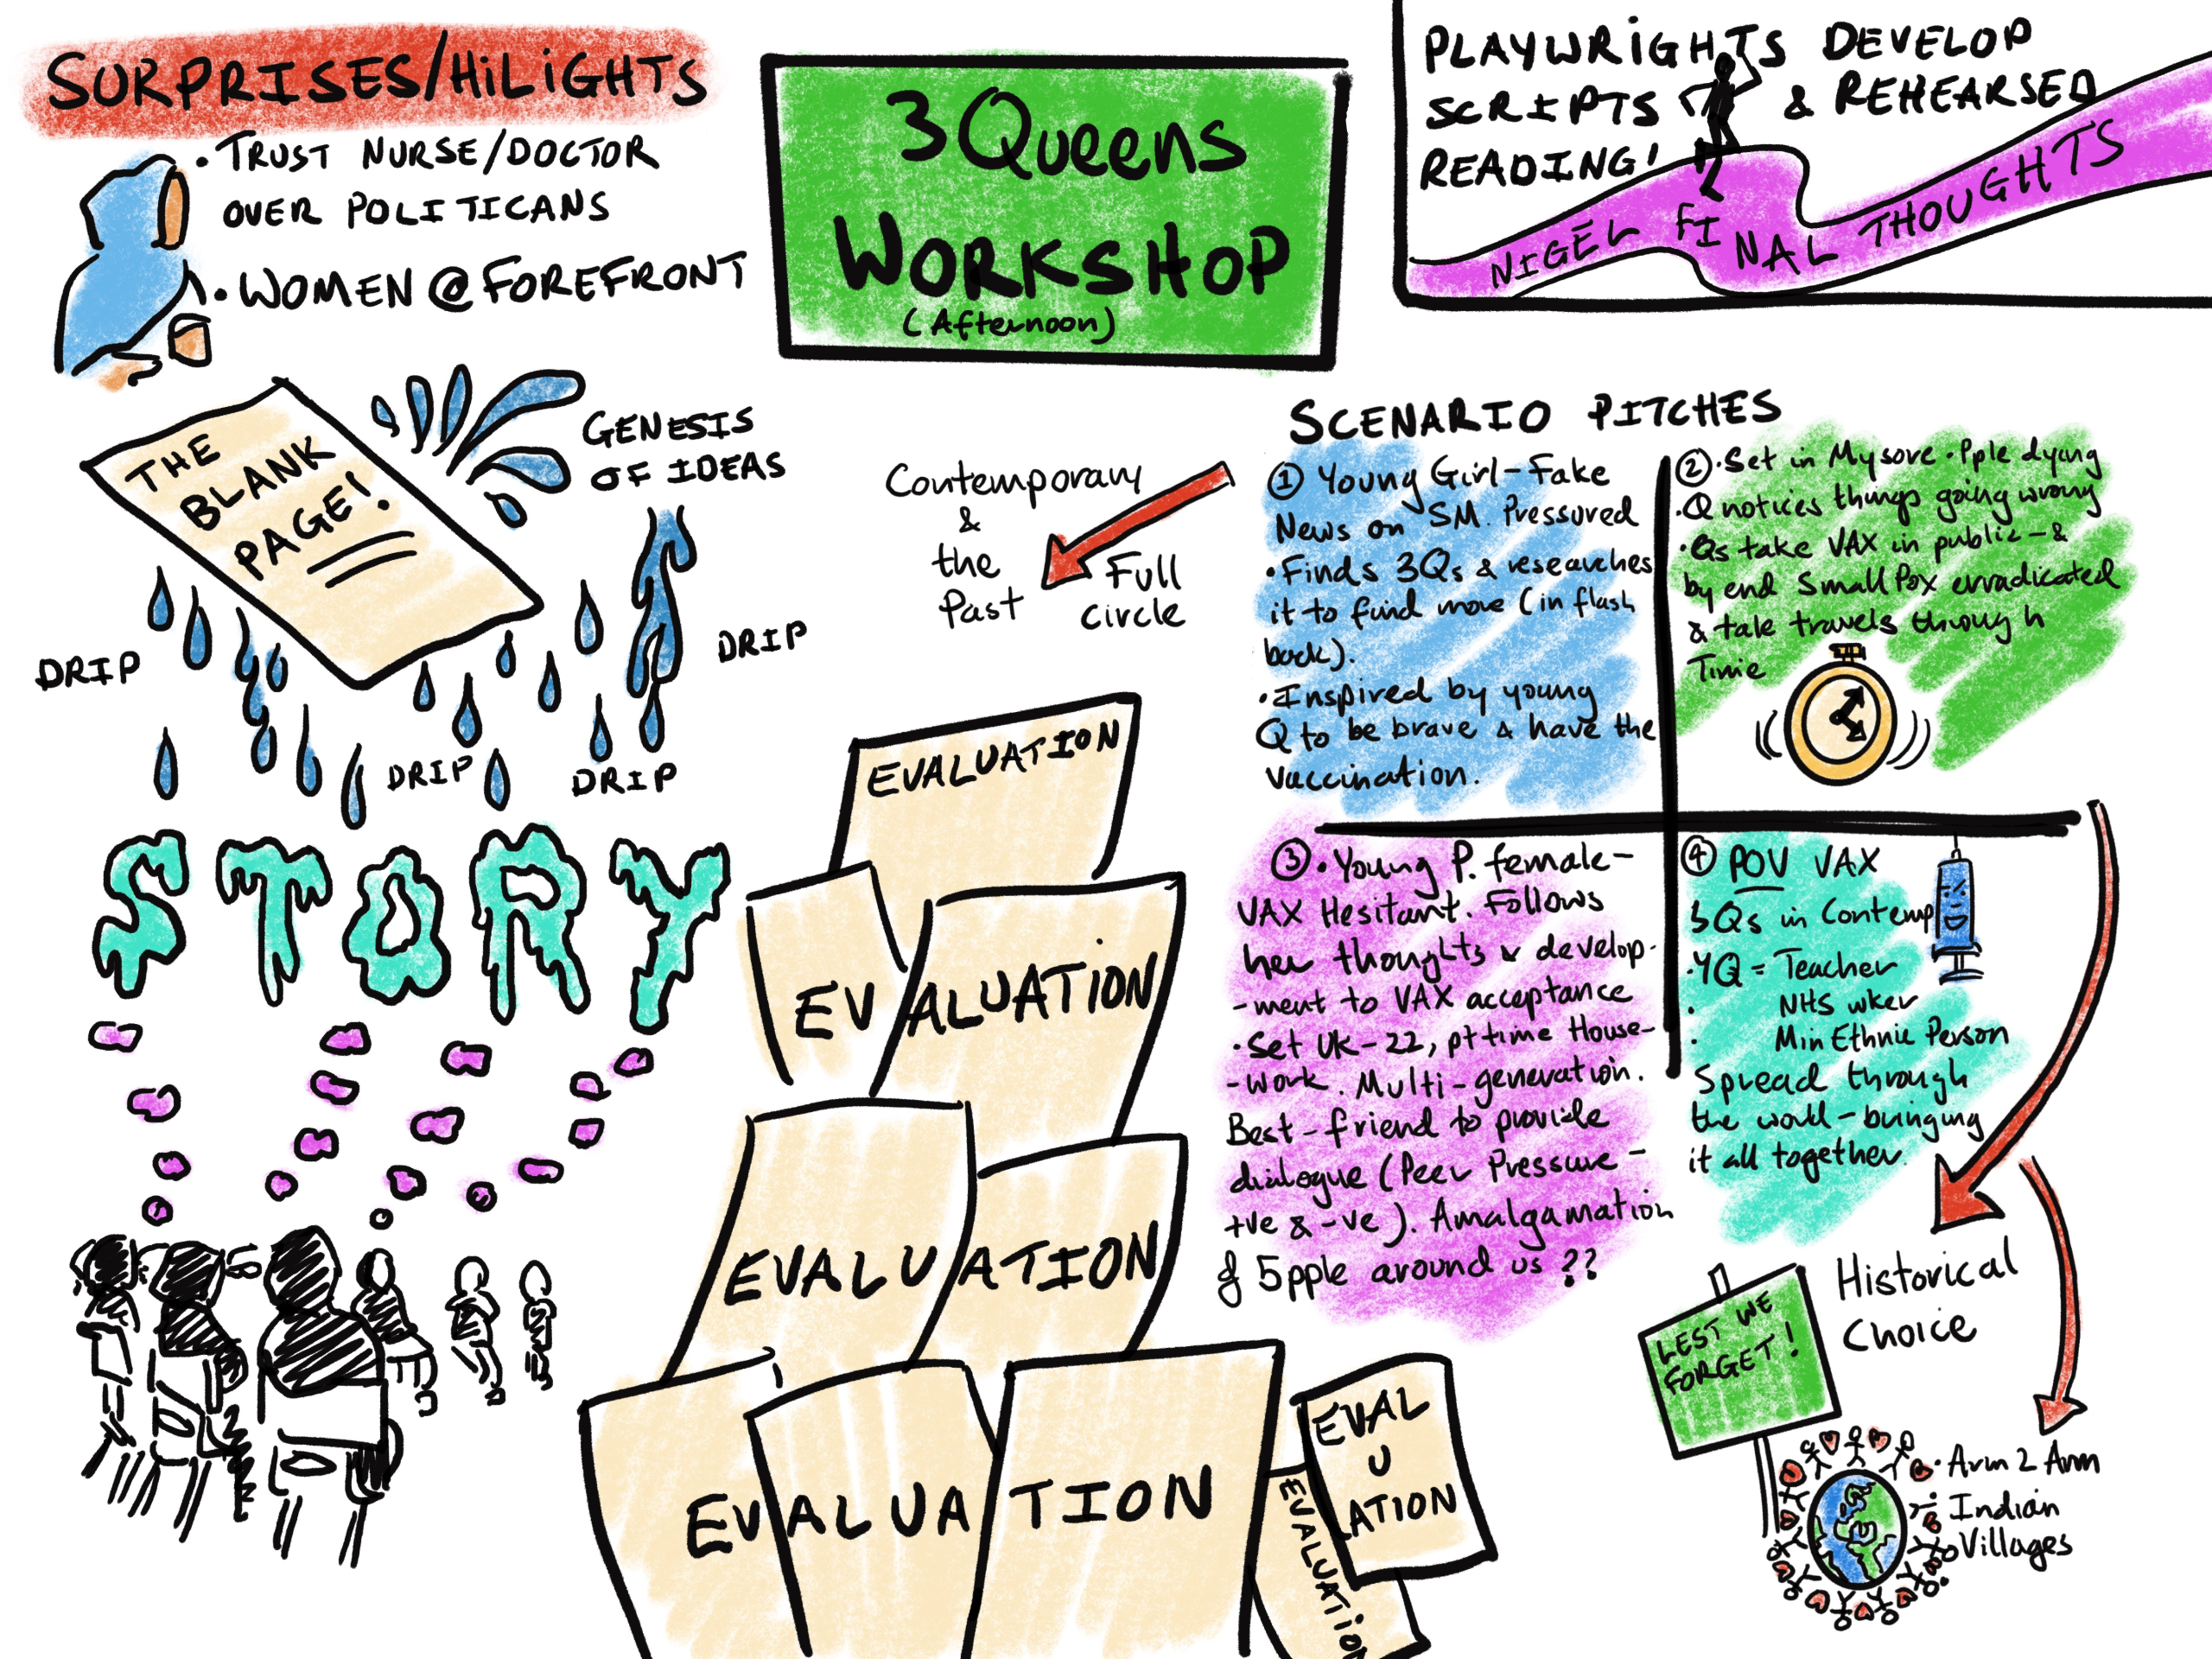 SURPRISES/HiLiGHTS
• TRUST NURSE/DOCTOR
OVER POLITICANS
• WOMEN @ FOREFRONT
3 Queens
WORKSHOP
(Afternoon)
PLAYWRiGHTS DEVELOP
SCRIPTS & REHEARSED
READING!
NIGEL FINAL THOUGHTS
THE
BLANK
PAGE!
GENESIS
OF IDEAS
DRIP
DRIP
DRIP
DRIP
STORY
Contemporary
&
the
Past
Full
circle
SCENARIO PITCHES
① Young Girl - Fake
News on SM. Pressured
• Finds 3Qs & researches
it to find more (in flash
back).
• Inspired by young
Q to be brave & have the
vaccination.
② • Set in Mysore • Pple dying
• Q notices things going wrong
• Qs take VAX in public - &
by end Small Pox erradicated
& tale travels through
Time
③ • Young P. female -
VAX Hesitant. Follows
her thoughts & develop-
-ment to VAX acceptance
• Set UK - 22, pt time House-
-work. Multi-generation.
Best-friend to provide
dialogue (Peer Pressure -
+ve & -ve). Amalgamation
of 5pple around us ??
④ POV VAX
3Qs in Contemp
• YQ = Teacher
• NHS wker
• Min Ethnic Person
Spread through
the world - bringing
it all together.
EVALUATION
EVALUATION
EVALUATION
EVALUATION
EVALUATION
EVAL
U
ATION
Historical
Choice
LEST WE
FORGET!
• Arm 2 Arm
Indian
Villages